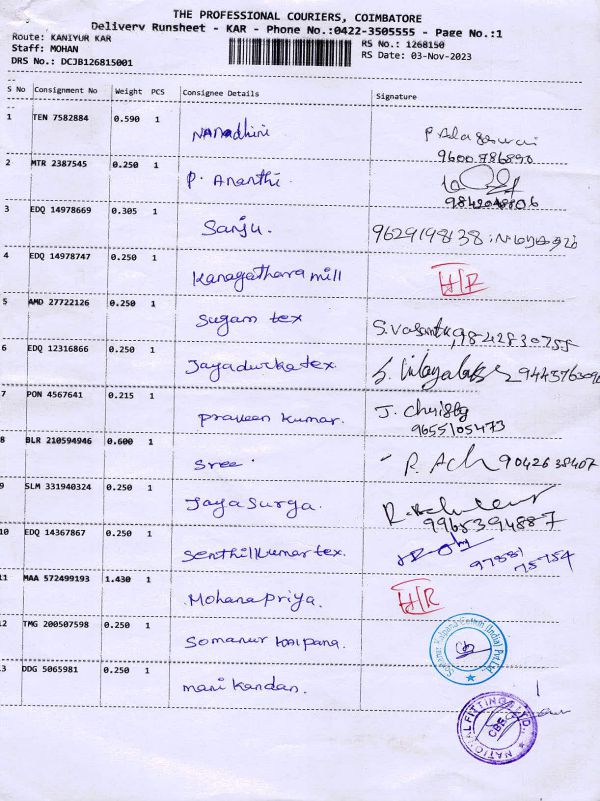 THE PROFESSIONAL COURIERS, COIMBATORE
Delivery Runsheet - KAR - Phone No.:0422-3505555 - Page No.:1
Route: KANIYUR KAR
RS No.: 1268150
Staff: MOHAN
RS Date: 03-Nov-2023
DRS No.: DCJB126815001
S No Consignment No Weight PCS Consignee Details Signature
1 TEN 7582884 0.590 1 Nanadhini
9600786890
2 MTR 2387545 0.250 1 P. Ananthi.
3 EDQ 14978669 0.305 1 Sanju. 9629198138
4 EDQ 14978747 0.250 1 Kanagathara mill H/R
5 AMD 27722126 0.250 1 Sugam tex S. 9842830755
6 EDQ 12316866 0.250 1 Jayadurka tex.
7 PON 4567641 0.215 1 Praveen kumar. J.
9655105473
8 BLR 210594946 0.600 1 Sree. 9042638407
9 SLM 331940324 0.250 1 Jaya Surya. R.
9965394887
10 EDQ 14367867 0.250 1 Senthilkumar tex. 97881
75754
11 MAA 572499193 1.430 1 Mohana priya. H/R
12 TMG 200507598 0.250 1 Somanur kalpana.
Somanur Kalpana Cotton (India) Pvt.Ltd.
13 DDG 5065981 0.250 1 mani kandan.
NATIONAL FITTING LTD.,
CBE